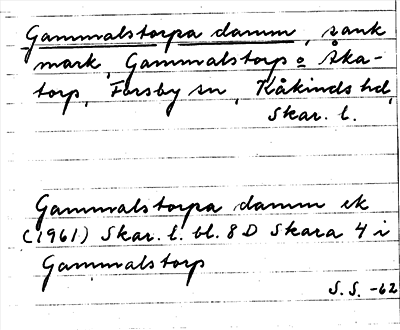 Gammalstorpa damm, sank
mark, Gammalstorp o Åka-
torp, Forsby sn, Kåkinds hd,
Skar. l.
Gammalstorpa damm ek
(1961) Skar. l. bl. 8 D Skara 4 i
Gammalstorp
S.S. -62